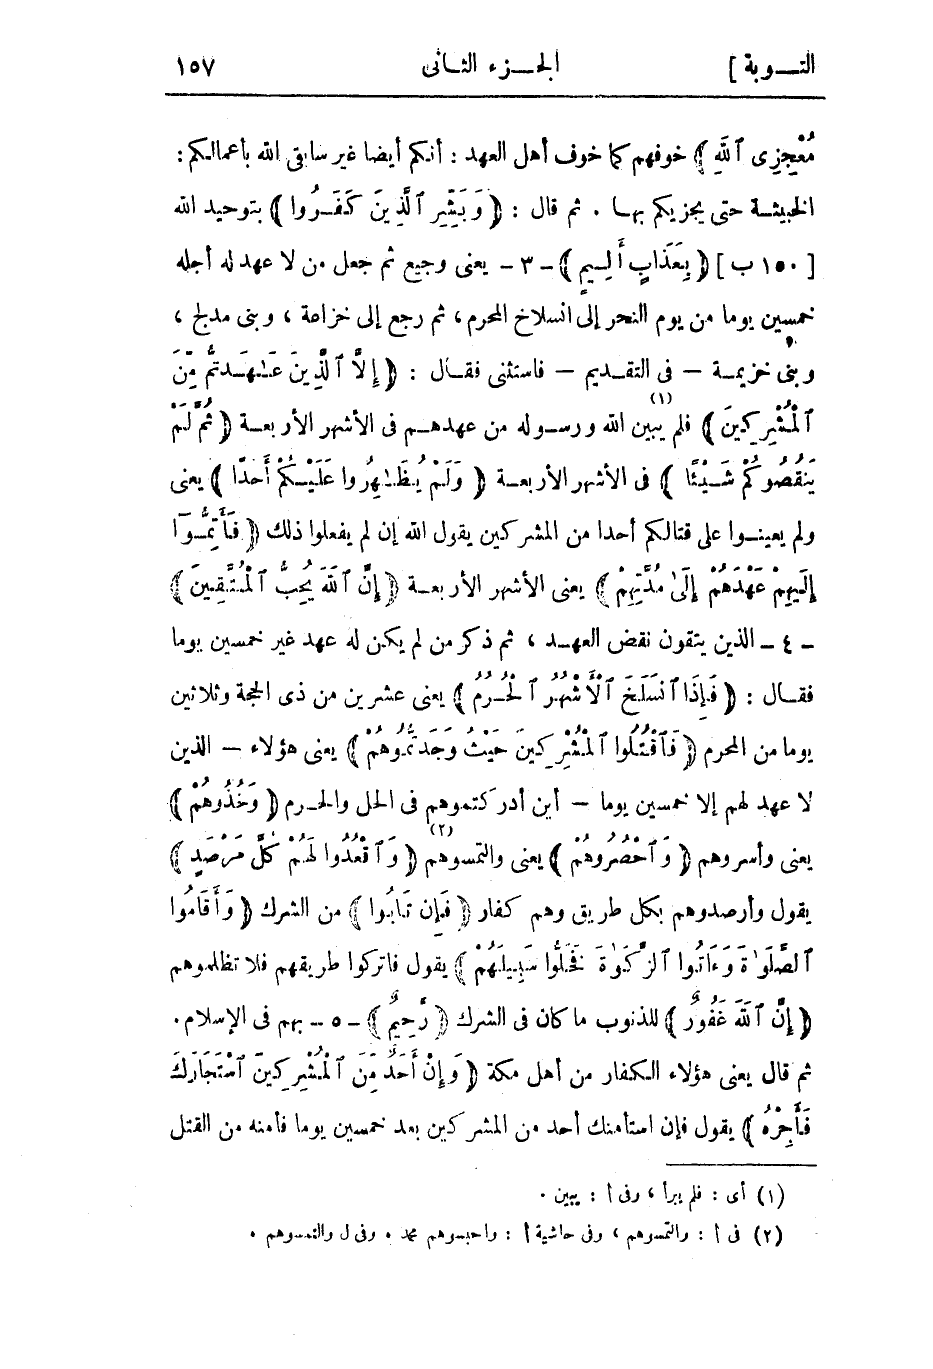 التـــوبة ] الجـــزء الثـانى ١٥٧
مُعْجِزِى ٱللَّهِ ﴾ خوفهم كما خوف أهل العهد : أنكم أيضا غير سابقى الله بأعمالكم :
الخبيثـة حتى يجزيكم بهـا . ثم قال : ﴿ وَبَشِّرِ ٱلَّذِينَ كَفَرُوا ﴾ بتوحيد الله
[ ١٥٠ ب ] ﴿ بِعَذَابٍ أَلِـيمٍ ﴾ - ٣ - يعنى وجيع ثم جعل من لا عهد له أجله
خمسين يوما من يوم النحر إلى انسلاخ المحرم ، ثم رجع إلى خزاعة ، وبنى مدلج ،
وبنى خزيمـة – فى التقـديم – فاستثنى فقـال : ﴿ إِلَّا ٱلَّذِينَ عَـٰهَـدتُّم مِّنَ
ٱلْمُشْرِكِينَ ﴾ فلم يبين (١) الله ورسوله من عهدهـم فى الأشهر الأربعـة ﴿ ثُمَّ لَمْ
يَنقُصُوكُمْ شَـيْئًا ﴾ فى الأشهر الأربعـة ﴿ وَلَمْ يُظَـٰهِرُوا عَلَيْـكُمْ أَحَدًا ﴾ يعنى
ولم يعينـوا على قتالكم أحدا من المشركين يقول الله إن لم يفعلوا ذلك ﴿ فَأَتِمُّـوٓا
إِلَيْهِمْ عَهْدَهُمْ إِلَىٰ مُدَّتِهِمْ ﴾ يعنى الأشهر الأربعـة ﴿ إِنَّ ٱللَّهَ يُحِبُّ ٱلْمُتَّقِينَ ﴾
- ٤ - الذين يتقون نقض العهـد ، ثم ذكر من لم يكن له عهد غير خمسين يوما
فقـال : ﴿ فَإِذَا ٱنسَلَخَ ٱلْأَشْهُرُ ٱلْحُرُمُ ﴾ يعنى عشرين من ذى الحجة وثلاثين
يوما من المحرم ﴿ فَٱقْتُلُوا ٱلْمُشْرِكِينَ حَيْثُ وَجَدتُّمُوهُمْ ﴾ يعنى هؤلاء – الذين
لا عهد لهم إلا خمسين يوما – أين أدركتموهم فى الحل والحـرم ﴿ وَخُذُوهُمْ ﴾
يعنى وأسروهم ﴿ وَٱحْصُرُوهُمْ ﴾ يعنى والتمسوهم (٢) ﴿ وَٱقْعُدُوا لَهُمْ كُلَّ مَرْصَدٍ ﴾
يقول وأرصدوهم بكل طريق وهم كفار ﴿ فَإِن تَابُوا ﴾ من الشرك ﴿ وَأَقَامُوا
ٱلصَّلَوٰةَ وَءَاتَوُا ٱلزَّكَوٰةَ فَخَلُّوا سَبِيلَهُمْ ﴾ يقول فاتركوا طريقهم فلا تظلموهم
﴿ إِنَّ ٱللَّهَ غَفُورٌ ﴾ للذنوب ما كان فى الشرك ﴿ رَّحِيمٌ ﴾ - ٥ - بهم فى الإسلام .
ثم قال يعنى هؤلاء الكفار من أهل مكة ﴿ وَإِنْ أَحَدٌ مِّنَ ٱلْمُشْرِكِينَ ٱسْتَجَارَكَ
فَأَجِرْهُ ﴾ يقول فإن استأمنك أحد من المشركين بعد خمسين يوما فأمنه من القتل
(١) أى : فلم يبرأ ، وفى أ : يبين .
(٢) فى أ : والتمسوهم ، وفى حاشية أ : واحبسوهم محمد . وفى ل والتمسوهم .